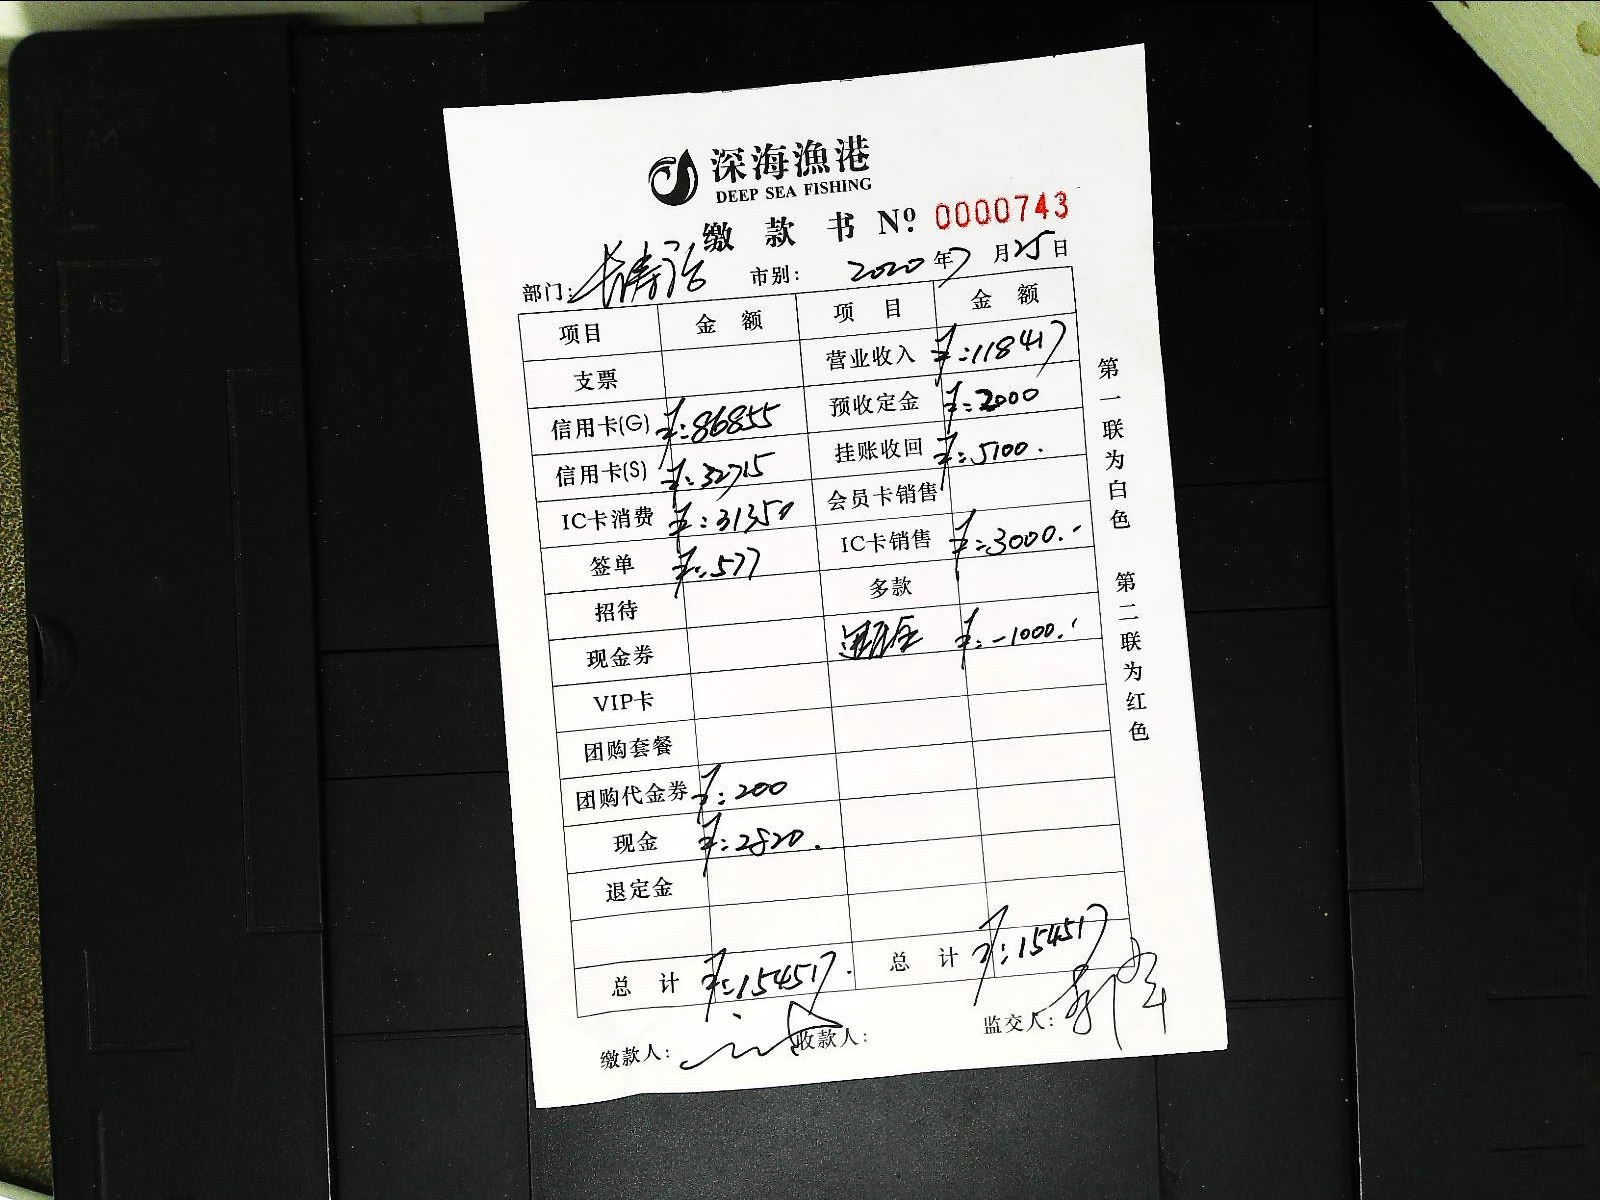 深海漁港
DEEP SEA FISHING
缴款书 Nº: 0000743
部门: 长寿路 市别: 2020年7月25日
项目 金额 项目 金额
支票 营业收入 ¥:118417
信用卡(G) ¥:86855 预收定金 ¥:2000
信用卡(S) ¥:32715 挂账收回 ¥:5100.
IC卡消费 ¥:31350 会员卡销售
签单 ¥:577 IC卡销售 ¥:3000.-
招待 多款
现金券 ¥:-1000.-
VIP卡
团购套餐
团购代金券 ¥:200
现金 ¥:2820.
退定金
总计 ¥:154517. 总计 ¥:154517
缴款人: 收款人: 监交人:
第一联为白色 第二联为红色